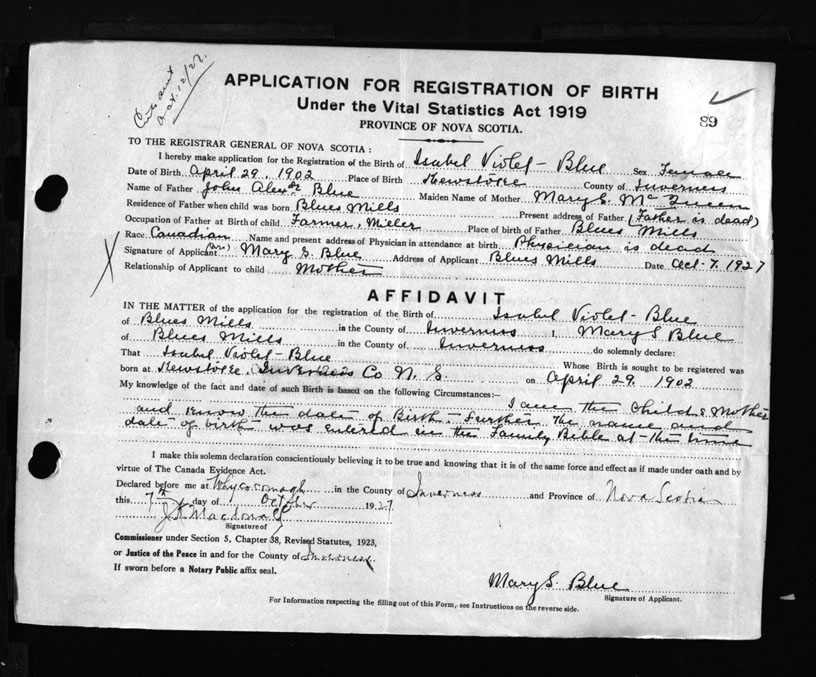 APPLICATION FOR REGISTRATION OF BIRTH
Under the Vital Statistics Act 1919
PROVINCE OF NOVA SCOTIA.
89
TO THE REGISTRAR GENERAL OF NOVA SCOTIA :
I hereby make application for the Registration of the Birth of Isabel Violet Blue Sex Female
Date of Birth April 29, 1902 Place of Birth County of Inverness
Name of Father John Alexr Blue Maiden Name of Mother Mary S. McQueen
Residence of Father when child was born Blues Mills Present address of Father (Father is dead)
Occupation of Father at Birth of child Farmer, Miller Place of birth of Father Blues Mills
Race Canadian Name and present address of Physician in attendance at birth Physician is dead
Signature of Applicant (Mrs) Mary S. Blue Address of Applicant Blues Mills Date Oct. 7, 1927
Relationship of Applicant to child Mother
AFFIDAVIT
IN THE MATTER of the application for the registration of the Birth of Isabel Violet Blue
of Blues Mills in the County of Inverness I, Mary S Blue
of Blues Mills in the County of Inverness do solemnly declare:
That Isabel Violet Blue Whose Birth is sought to be registered was
born at Inverness Co N. S. on April 29, 1902
My knowledge of the fact and date of such Birth is based on the following Circumstances:- I am the Child's Mother
and know the date of Birth - further the name and
date of birth was entered in the Family Bible at the time
I make this solemn declaration conscientiously believing it to be true and knowing that it is of the same force and effect as if made under oath and by
virtue of The Canada Evidence Act.
Declared before me at Whycocomagh in the County of Inverness and Province of Nova Scotia
this 7th day of October 1927
Macdonald
Signature of
Commissioner under Section 5, Chapter 38, Revised Statutes, 1923,
or Justice of the Peace in and for the County of Inverness
If sworn before a Notary Public affix seal.
Mary S. Blue
Signature of Applicant.
For Information respecting the filling out of this Form, see Instructions on the reverse side.